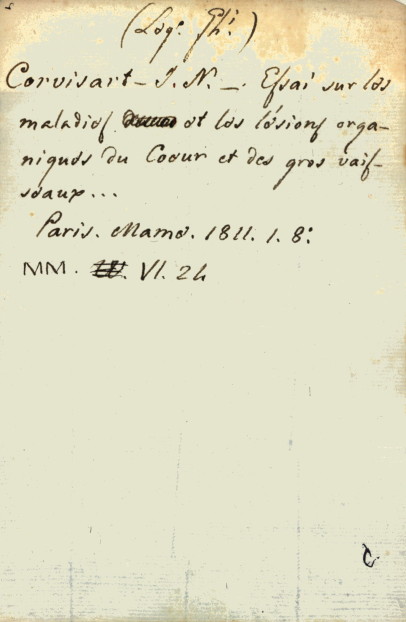 (Leg: Ghi:)
Corvisart – J. N. –. Essai sur les
maladies et les lésions orga-
niques du Coeur et des gros vais-
seaux...
Paris. Mame. 1811. 1. 8:
MM. VI. 24
C